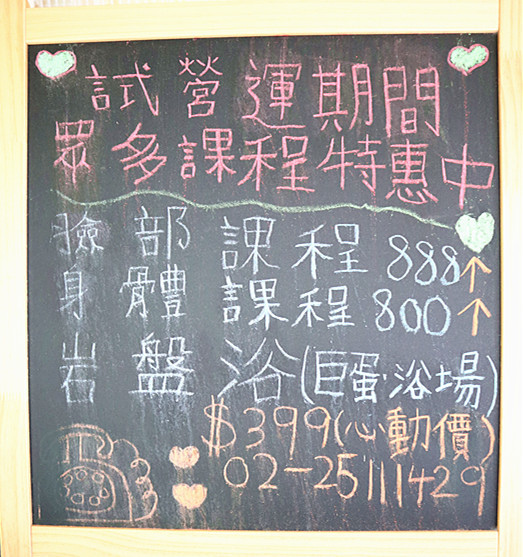 試營運期間
眾多課程特惠中
臉部課程888↑
身體課程800↑
岩盤浴(巨蛋浴場)
$399(心動價)
02-25111429